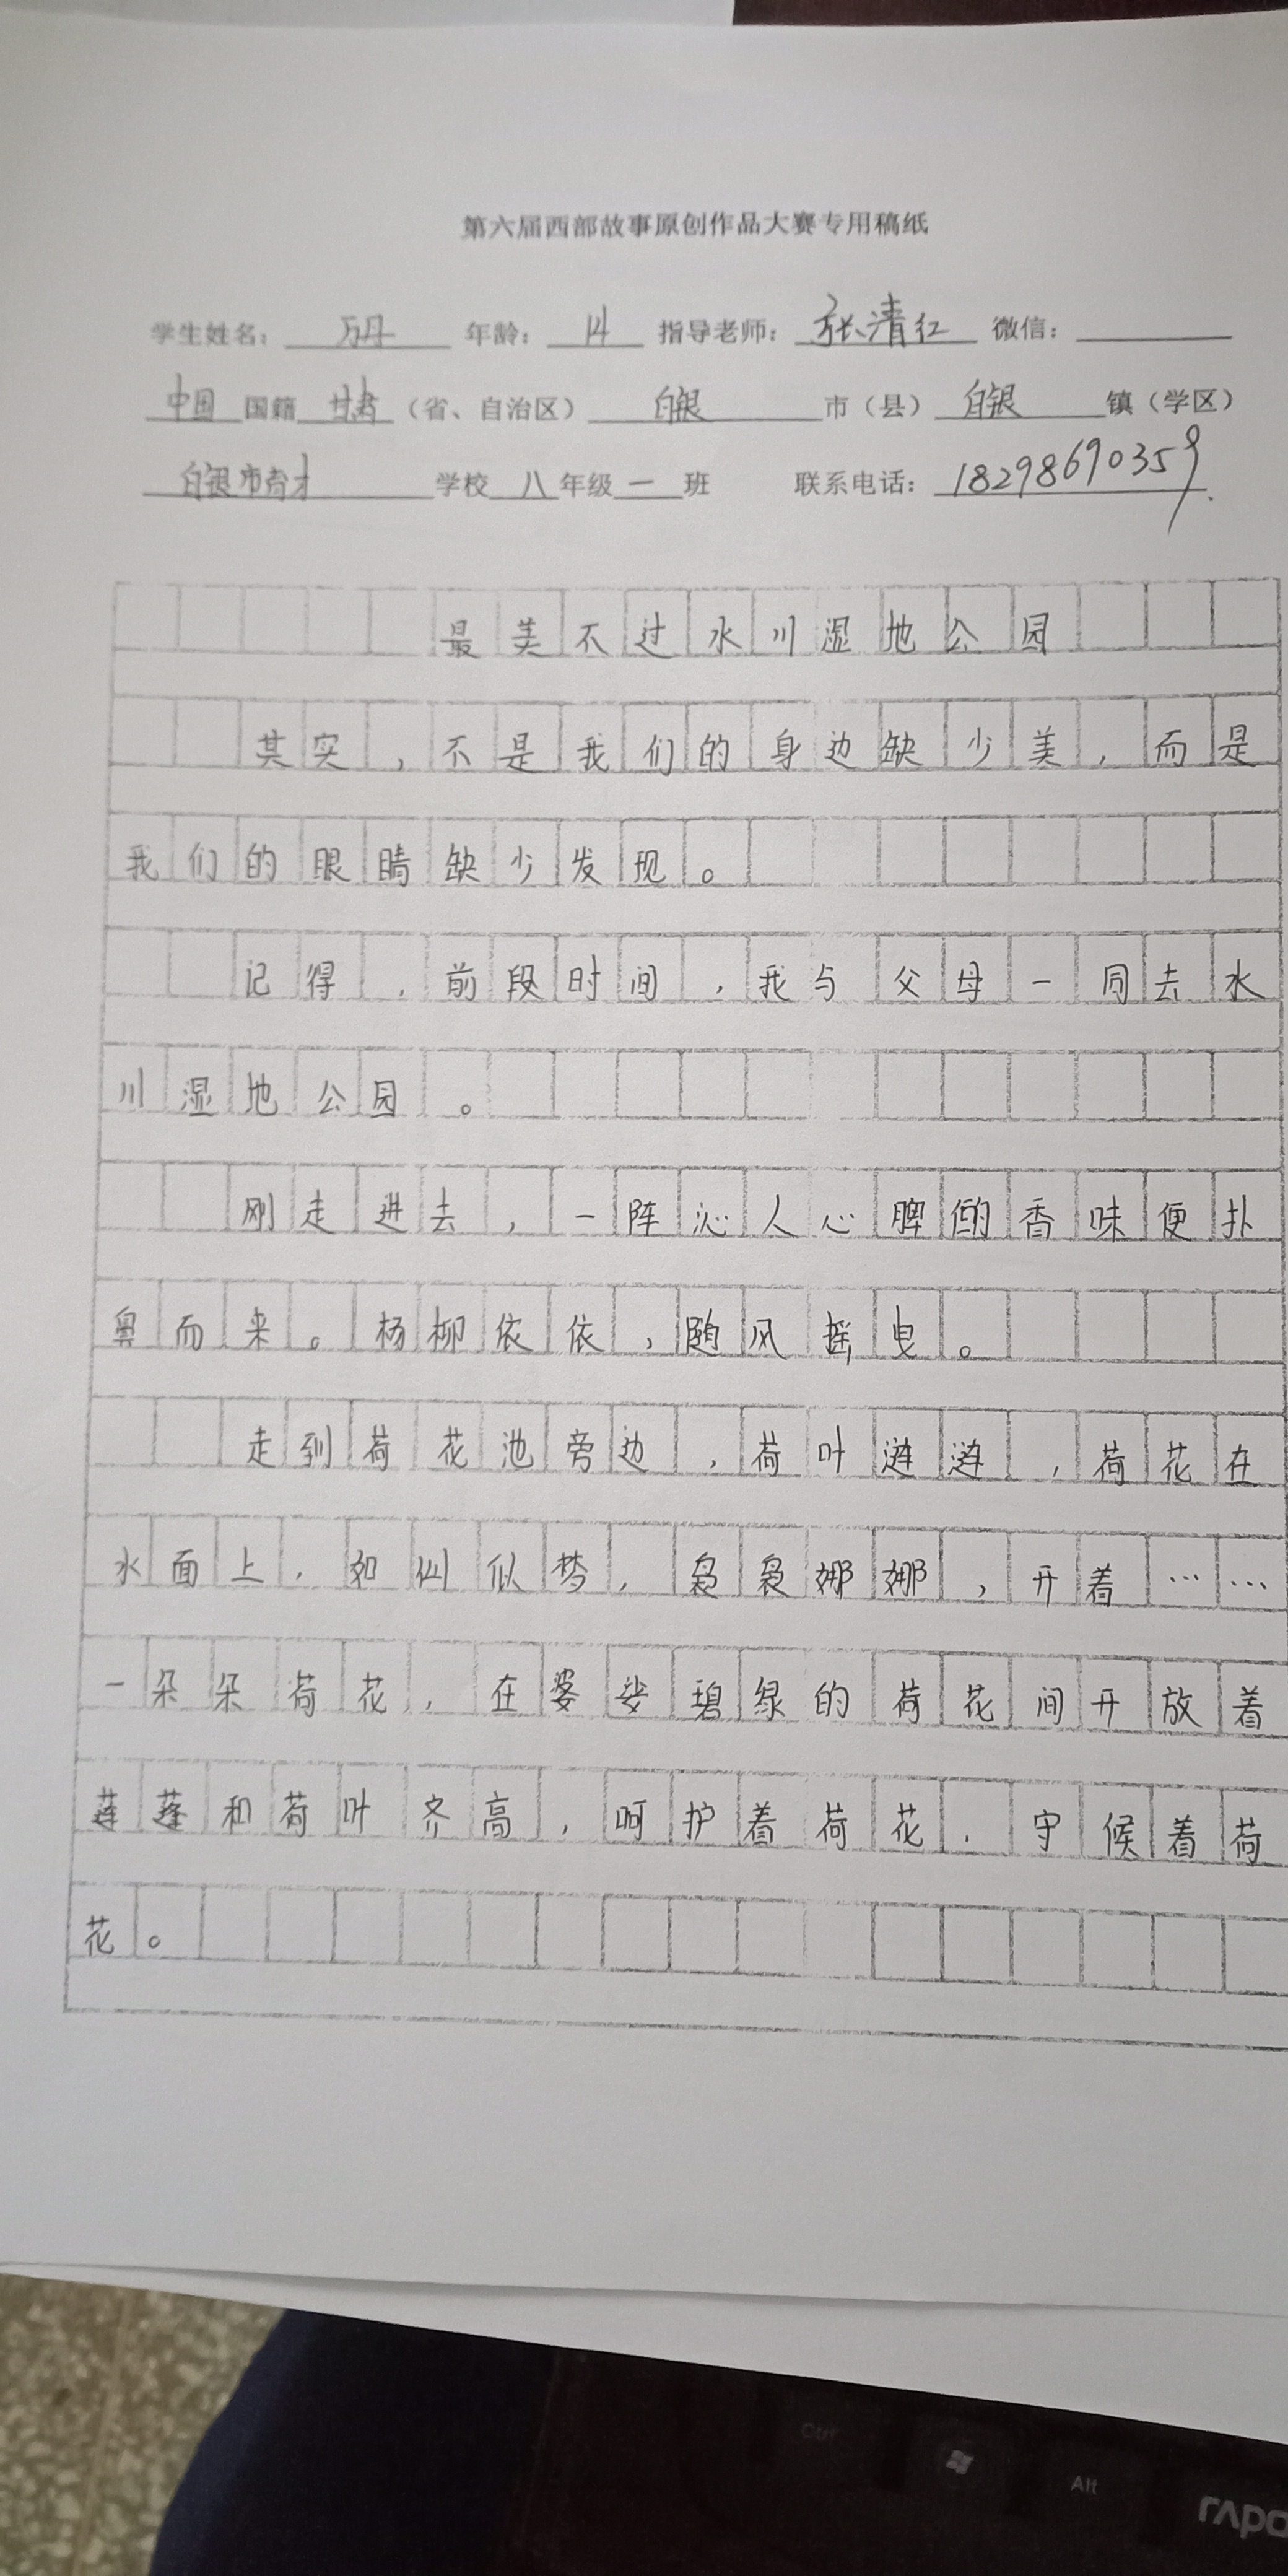 第六届西部故事原创作品大赛专用稿纸
学生姓名： 万丹 年龄： 14 指导老师： 张清红 微信：
中国 国籍 甘肃 （省、自治区） 白银 市（县） 白银 镇（学区）
白银市育才 学校 八 年级 一 班 联系电话： 18298690359
最美不过水川湿地公园
其实，不是我们的身边缺少美，而是
我们的眼睛缺少发现。
记得，前段时间，我与父母一同去水
川湿地公园。
刚走进去，一阵沁人心脾的香味便扑
鼻而来。杨柳依依，随风摇曳。
走到荷花池旁边，荷叶涟涟，荷花在
水面上，如仙似梦，袅袅娜娜，开着……
一朵朵荷花，在婆娑碧绿的荷花间开放着
莲蓬和荷叶齐高，呵护着荷花，守候着荷
花。
Ctrl
Alt
rapo